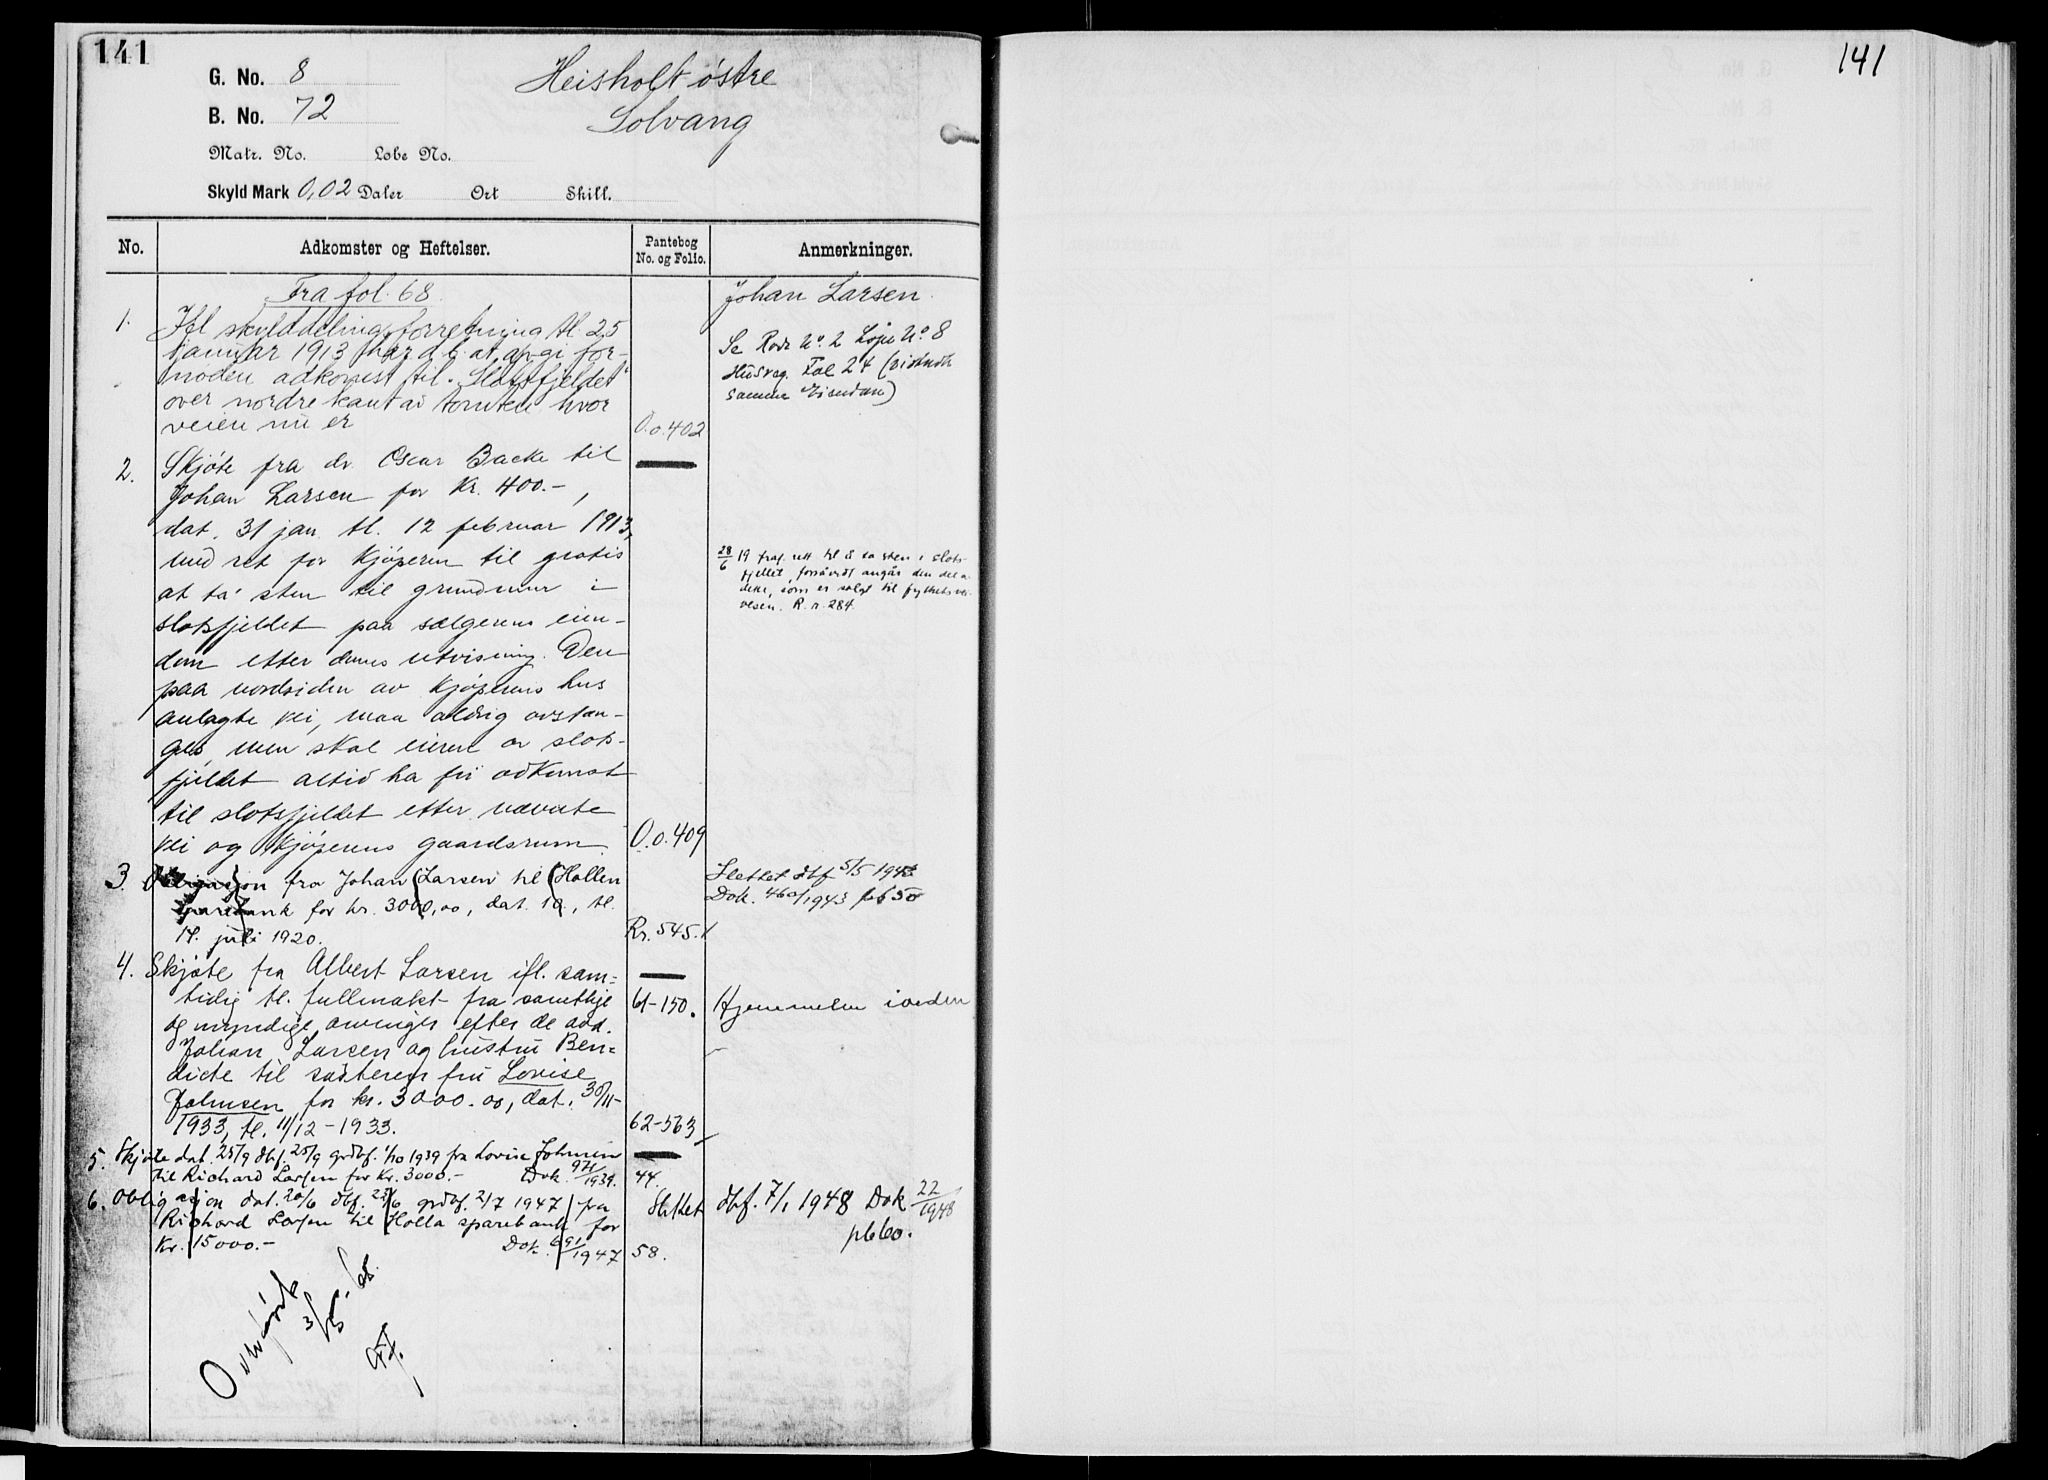 141
G. No. 8
B. No. 72
Heisholt østre
Solvang
Matr. No. Løbe No.
Skyld Mark 0,02 Daler Ort Skill.
No.
Adkomster og Heftelser.
Pantebog
No. og Folio.
Anmerkninger.
Fra fol. 68
1. Ifl skylddelingsforretning tl 25
januar 1913 har at avgi for-
nøden adkomst til "Slotsfjeldet"
over nordre kant av tomten hvor
veien nu er
O.o.402
2. Skjøte fra dr. Oscar Backe til
Johan Larsen for Kr. 400.-,
dat. 31 jan. tl. 12 februar 1913,
med ret for kjøperen til gratis
at ta' sten til grundmur i
slotsfjeldet paa sælgerens eien-
dom etter dennes utvisning. Den
paa nordsiden av kjøperens hus
anlagte vei, maa aldrig avstæn-
ges, men skal eieren av slots-
fjeldet altid ha fri adkomst
til slotsfjeldet etter nævnte
vei og kjøperens gaardsrum
O.o.409
3. Obligasjon fra Johan Larsen til Hollen
sparebank for kr. 3000,00, dat. 10., tl.
14. juli 1920.
Rr. 545.
4. Skjøte fra Albert Larsen ifl. sam-
tidig tl. fullmakt fra samtlige
og myndige arvinger efter de avd.
Johan Larsen og hustru Ben-
dicte til søsteren fru Lovise
Johnsen for kr. 3000.00, dat. 30/11-
1933, tl. 11/12-1933.
61-150.
62-563
5. Skjøte dat. 25/9 dbf. 25/9 grdbf. 1/10 1939 fra Lovise Johnsen
til Richard Larsen for Kr. 3000.- Dok. 971/1939.
44.
6. Obligasjon dat. 20/6 dbf. 22/6 grdbf. 2/7 1947 fra
Richard Larsen til Holla sparebank for
Kr. 15000.- Dok. 691/1947
58.
Johan Larsen
Se Rode No. 2 Løpe No. 8
Husreg. Fol 24
samme Eiendom)
28/6 19 fraf. rett til å ta sten i slots-
fjellet, forsåvidt angår den del a
dette, som er solgt til fylkets vei-
vesen. R. r. 284.
Slettet dbf 5/5 1943
Dok. 460/1943 pb 50
Hjemmelen iorden
Slettet dbf. 7/1 1948 Dok 22/1948
pb 60.
Overført
3/5. 68.
141